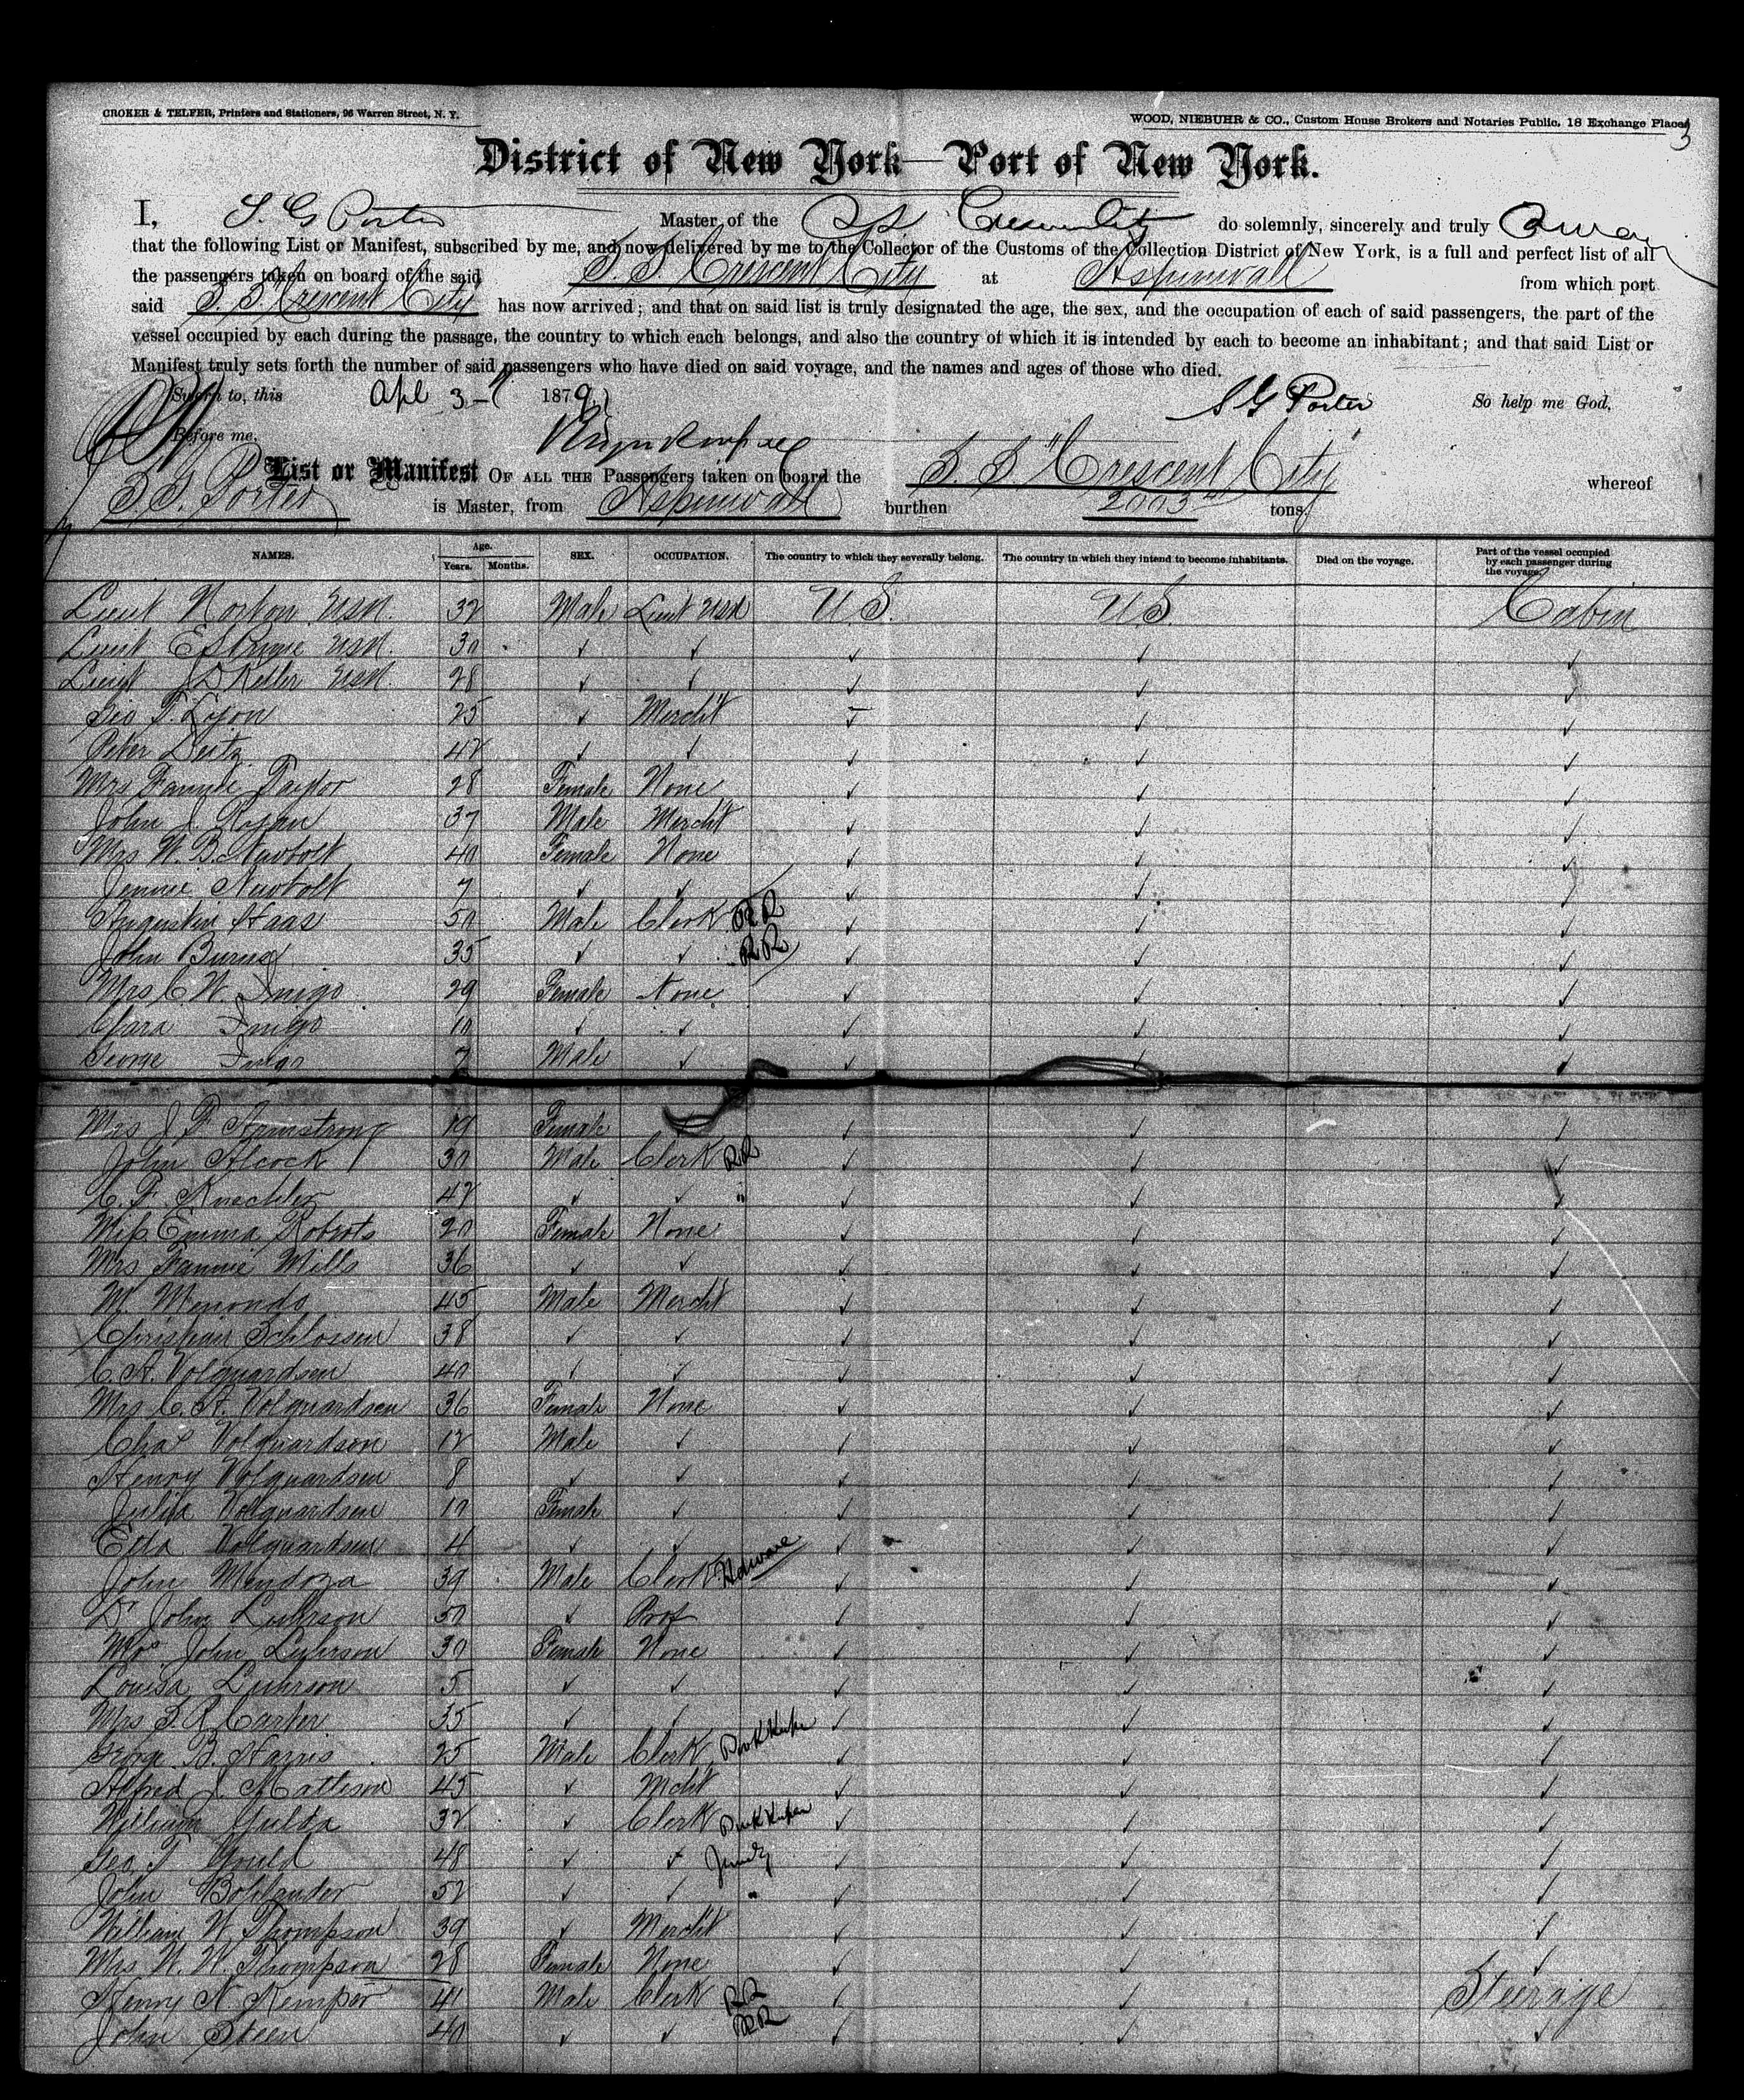 CROKER & TELFER, Printers and Stationers, 96 Warren Street, N. Y.
WOOD, NIEBUHR & CO., Custom House Brokers and Notaries Public, 18 Exchange Place
3
District of New York—Port of New York.
I, S. G Porter Master of the SS Crescent City do solemnly, sincerely and truly swear
that the following List or Manifest, subscribed by me, and now delivered by me to the Collector of the Customs of the Collection District of New York, is a full and perfect list of all
the passengers taken on board of the said S. S. Crescent City at Aspinwall from which port
said S. S Crescent City has now arrived; and that on said list is truly designated the age, the sex, and the occupation of each of said passengers, the part of the
vessel occupied by each during the passage, the country to which each belongs, and also the country of which it is intended by each to become an inhabitant; and that said List or
Manifest truly sets forth the number of said passengers who have died on said voyage, and the names and ages of those who died.
Sworn to, this Apl 3 1879 S G Porter So help me God,
Before me,
List or Manifest OF ALL THE Passengers taken on board the S S "Crescent City" whereof
S. G. Porter is Master, from Aspinwall burthen 2003 tons.
NAMES. Age. Years. Months. SEX. OCCUPATION. The country to which they severally belong. The country in which they intend to become inhabitants. Died on the voyage. Part of the vessel occupied by each passenger during the voyage.
Lieut Norton USN. 32 Male Lieut USN U.S. U S Cabin
Lieut E S Prime USN. 30 ✓ ✓ ✓ ✓ ✓
Lieut J D Keller USN. 28 ✓ ✓ ✓ ✓ ✓
Geo T. Lyon 25 ✓ Mercht ✓ ✓ ✓
Peter Deitz 42 ✓ ✓ ✓ ✓ ✓
Mrs Fannie Taylor 28 Female None ✓ ✓ ✓
John J. Ryan 37 Male Mercht ✓ ✓ ✓
Mrs W. B. Newbolt 40 Female None ✓ ✓ ✓
Jennie Newbolt 7 ✓ ✓ ✓ ✓ ✓
Augustin Haas 50 Male Clerk RR ✓ ✓ ✓
John Burns 35 ✓ ✓ RR ✓ ✓ ✓
Mrs C W. Inigo 29 Female None ✓ ✓ ✓
Clara Inigo 10 ✓ ✓ ✓ ✓ ✓
George Inigo 7 Male ✓ ✓ ✓ ✓
Mrs J. F. Armstrong 19 Female ✓ ✓ ✓ ✓
John Alcock 30 Male Clerk RR ✓ ✓ ✓
C. F. Kuechler 42 ✓ ✓ " ✓ ✓ ✓
Miss Emma Robrots 20 Female None ✓ ✓ ✓
Mrs Fannie Mills 36 ✓ ✓ ✓ ✓ ✓
M. Menondo 45 Male Mercht ✓ ✓ ✓
Christian Schlossen 38 ✓ ✓ ✓ ✓ ✓
C. A. Volquardsen 40 ✓ ✓ ✓ ✓ ✓
Mrs C. A. Volquardsen 36 Female None ✓ ✓ ✓
Chas Volquardson 12 Male ✓ ✓ ✓ ✓
Henry Volquardsen 8 ✓ ✓ ✓ ✓ ✓
Julia Volquardsen 10 Female ✓ ✓ ✓ ✓
Etta Volquardsen 4 ✓ ✓ ✓ ✓ ✓
John Mendoza 39 Male Clerk Hdware ✓ ✓ ✓
Dr John Luhrson 50 ✓ Prof ✓ ✓ ✓
Mrs John Luhrson 30 Female None ✓ ✓ ✓
Louisa Luhrson 5 ✓ ✓ ✓ ✓ ✓
Mrs S. R. Carter 35 ✓ ✓ ✓ ✓ ✓
George B. Harris 25 Male Clerk ✓ ✓ ✓
Alfred J. Mattison 45 ✓ Mcht ✓ ✓ ✓
William Gulda 32 ✓ Clerk ✓ ✓ ✓
Geo. T Gould 48 ✓ ✓ ✓ ✓ ✓
John Bohlander 52 ✓ ✓ " ✓ ✓ ✓
William W. Thompson 39 ✓ Mercht ✓ ✓ ✓
Mrs W. W. Thompson 28 Female None ✓ ✓ ✓
Henry N Kemper 41 Male Clerk RR ✓ ✓ Steerage
John Steen 40 ✓ ✓ RR ✓ ✓ ✓